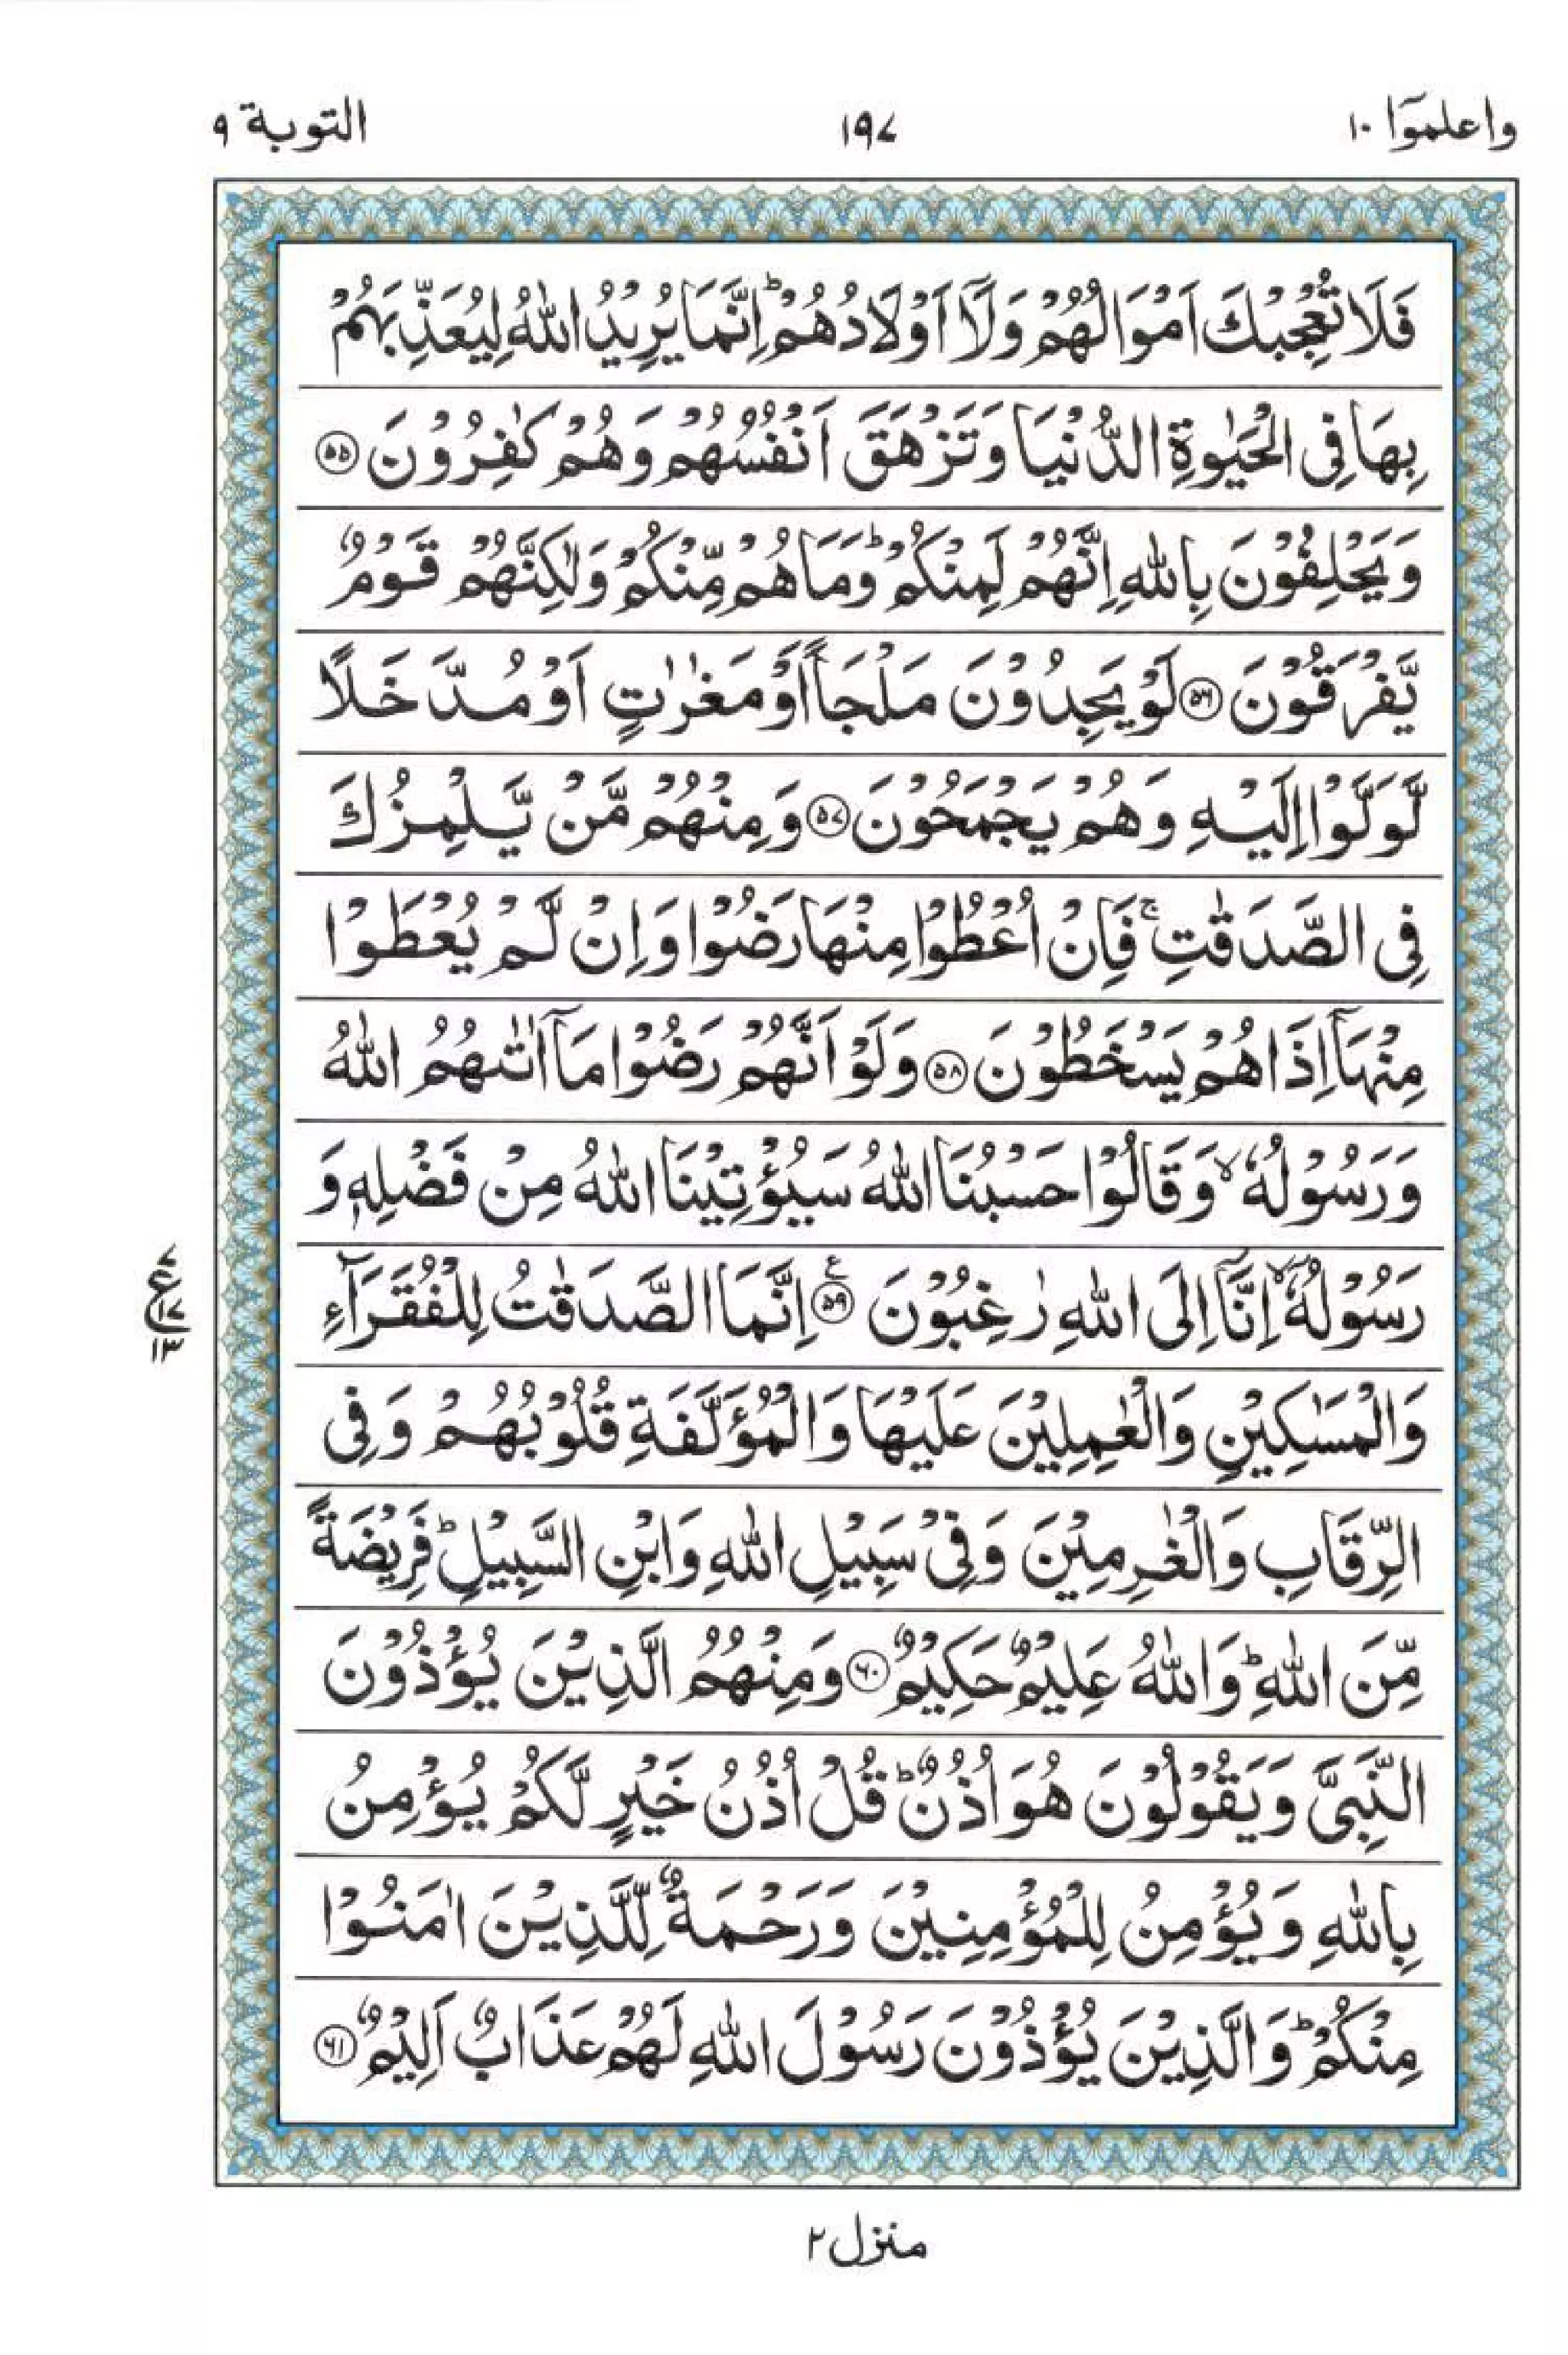 واعلموۤا ١٠
١٩٧
التوبة ٩
فَلَا تُعْجِبْكَ اَمْوَالُهُمْ وَلَاۤ اَوْلَادُهُمْ ؕ اِنَّمَا يُرِيْدُ اللّٰهُ لِيُعَذِّبَهُمْ
بِهَا فِى الْحَيٰوةِ الدُّنْيَا وَتَزْهَقَ اَنْفُسُهُمْ وَهُمْ كٰفِرُوْنَ ﴿۵۵﴾
وَيَحْلِفُوْنَ بِاللّٰهِ اِنَّهُمْ لَمِنْكُمْ ؕ وَمَا هُمْ مِّنْكُمْ وَلٰكِنَّهُمْ قَوْمٌ
يَّفْرَقُوْنَ ﴿۵۶﴾ لَوْ يَجِدُوْنَ مَلْجَاً اَوْ مَغٰرٰتٍ اَوْ مُدَّخَلًا
لَّوَلَّوْا اِلَيْهِ وَهُمْ يَجْمَحُوْنَ ﴿۵۷﴾ وَمِنْهُمْ مَّنْ يَّلْمِزُكَ
فِى الصَّدَقٰتِ ۚ فَاِنْ اُعْطُوْا مِنْهَا رَضُوْا وَاِنْ لَّمْ يُعْطَوْا
مِنْهَاۤ اِذَا هُمْ يَسْخَطُوْنَ ﴿۵۸﴾ وَلَوْ اَنَّهُمْ رَضُوْا مَاۤ اٰتٰىهُمُ اللّٰهُ
وَرَسُوْلُهٗ ۙ وَقَالُوْا حَسْبُنَا اللّٰهُ سَيُؤْتِيْنَا اللّٰهُ مِنْ فَضْلِهٖ وَ
رَسُوْلُهٗۤ ۙ اِنَّاۤ اِلَى اللّٰهِ رٰغِبُوْنَ ﴿۵۹﴾ اِنَّمَا الصَّدَقٰتُ لِلْفُقَرَآءِ
وَالْمَسٰكِيْنِ وَالْعٰمِلِيْنَ عَلَيْهَا وَالْمُؤَلَّفَةِ قُلُوْبُهُمْ وَفِى
الرِّقَابِ وَالْغٰرِمِيْنَ وَفِىْ سَبِيْلِ اللّٰهِ وَابْنِ السَّبِيْلِ ؕ فَرِيْضَةً
مِّنَ اللّٰهِ ؕ وَاللّٰهُ عَلِيْمٌ حَكِيْمٌ ﴿۶۰﴾ وَمِنْهُمُ الَّذِيْنَ يُؤْذُوْنَ
النَّبِىَّ وَيَقُوْلُوْنَ هُوَ اُذُنٌ ؕ قُلْ اُذُنُ خَيْرٍ لَّكُمْ يُؤْمِنُ
بِاللّٰهِ وَيُؤْمِنُ لِلْمُؤْمِنِيْنَ وَرَحْمَةٌ لِّلَّذِيْنَ اٰمَنُوْا
مِنْكُمْ ؕ وَالَّذِيْنَ يُؤْذُوْنَ رَسُوْلَ اللّٰهِ لَهُمْ عَذَابٌ اَلِيْمٌ ﴿۶۱﴾
٧
ع
١٧
١٣
منزل ٢